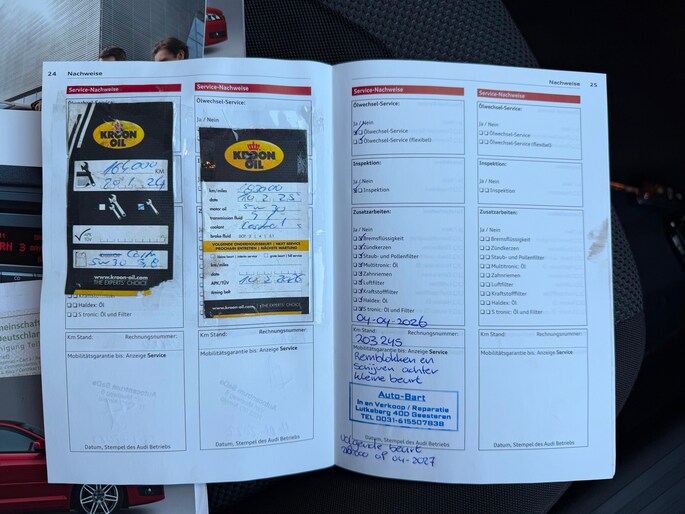 24 Nachweise
Service-Nachweise
KROON
OIL
164.000 KM
www.kroon-oil.com
THE EXPERTS' CHOICE
Km Stand: Rechnungsnummer:
Mobilitätsgarantie bis: Anzeige Service
Datum, Stempel des Audi Betriebs
Service-Nachweise
KROON
OIL
km/miles
date 14.2.25
motor oil 5W30
transmission fluid
coolant
brake fluid
VOLGENDE ONDERHOUDSBEURT | NEXT SERVICE
PROCHAIN ENTRETIEN | NÄCHSTE WARTUNG
km/miles
date
APK/TÜV 14.2.2026
timing belt
www.kroon-oil.com THE EXPERTS' CHOICE
Km Stand: Rechnungsnummer:
Mobilitätsgarantie bis: Anzeige Service
Datum, Stempel des Audi Betriebs
Nachweise 25
Service-Nachweise
Ölwechsel-Service:
Ja / Nein
Ölwechsel-Service
Ölwechsel-Service (flexibel)
Inspektion:
Ja / Nein
Inspektion
Zusatzarbeiten:
Ja / Nein
Bremsflüssigkeit
Zündkerzen
Staub- und Pollenfilter
Multitronic: Öl
Zahnriemen
Luftfilter
Kraftstofffilter
Haldex: Öl
S tronic: Öl und Filter
04-04-2026
Km Stand: Rechnungsnummer:
203245
Mobilitätsgarantie bis: Anzeige Service
Remblokken en
Schijven achter
kleine beurt
Auto-Bart
In en Verkoop / Reparatie
Lutkeberg 40D Geesteren
TEL 0031-615507838
Datum, Stempel des Audi Betriebs
volgende beurt
of 04-2027
Service-Nachweise
Ölwechsel-Service:
Ja / Nein
Ölwechsel-Service
Ölwechsel-Service (flexibel)
Inspektion:
Ja / Nein
Inspektion
Zusatzarbeiten:
Ja / Nein
Bremsflüssigkeit
Zündkerzen
Staub- und Pollenfilter
Multitronic: Öl
Zahnriemen
Luftfilter
Kraftstofffilter
Haldex: Öl
S tronic: Öl und Filter
Km Stand: Rechnungsnummer:
Mobilitätsgarantie bis: Anzeige Service
Datum, Stempel des Audi Betriebs